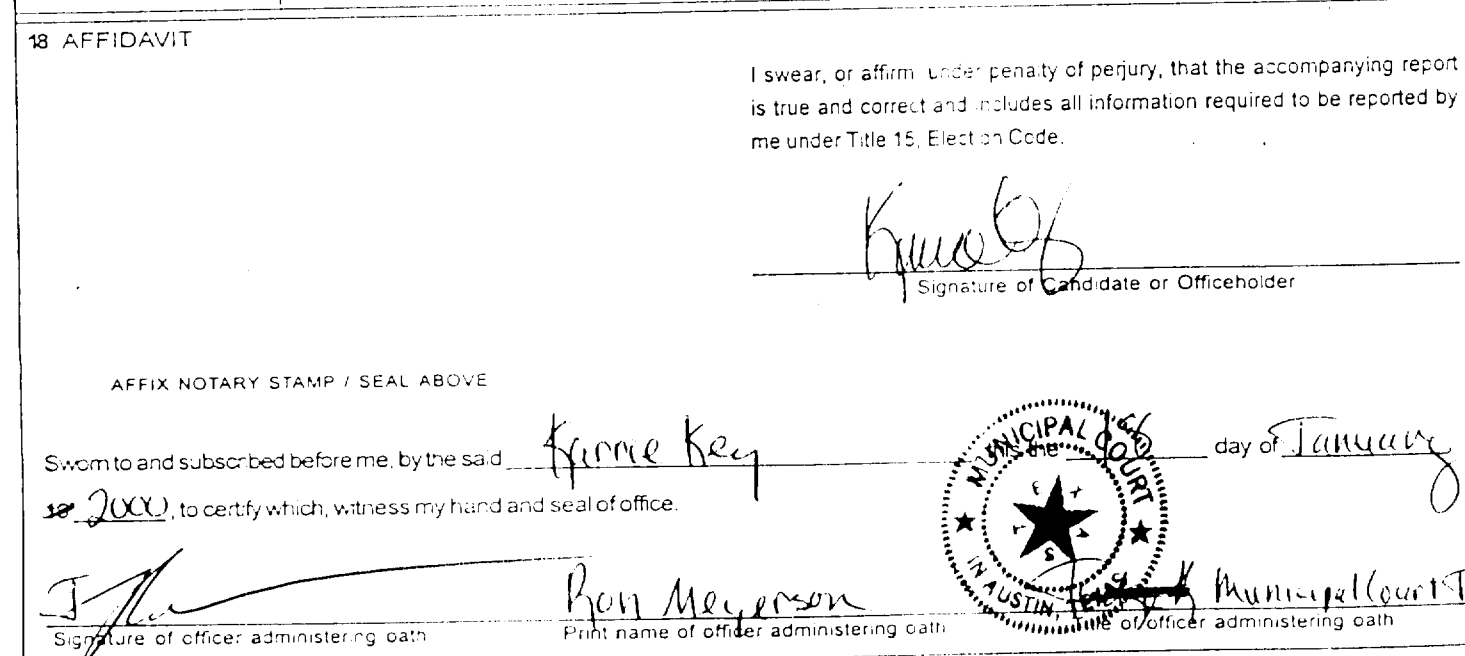 18 AFFIDAVIT
I swear, or affirm under penalty of perjury, that the accompanying report
is true and correct and includes all information required to be reported by
me under Title 15, Election Code.
Signature of Candidate or Officeholder
AFFIX NOTARY STAMP / SEAL ABOVE
Sworn to and subscribed before me, by the said Karrie Key this the day of January
19 2000, to certify which, witness my hand and seal of office.
MUNICIPAL COURT
TEXAS
IN AUSTIN,
Ron Meyerson Municipal Court
Signature of officer administering oath Print name of officer administering oath Title of officer administering oath